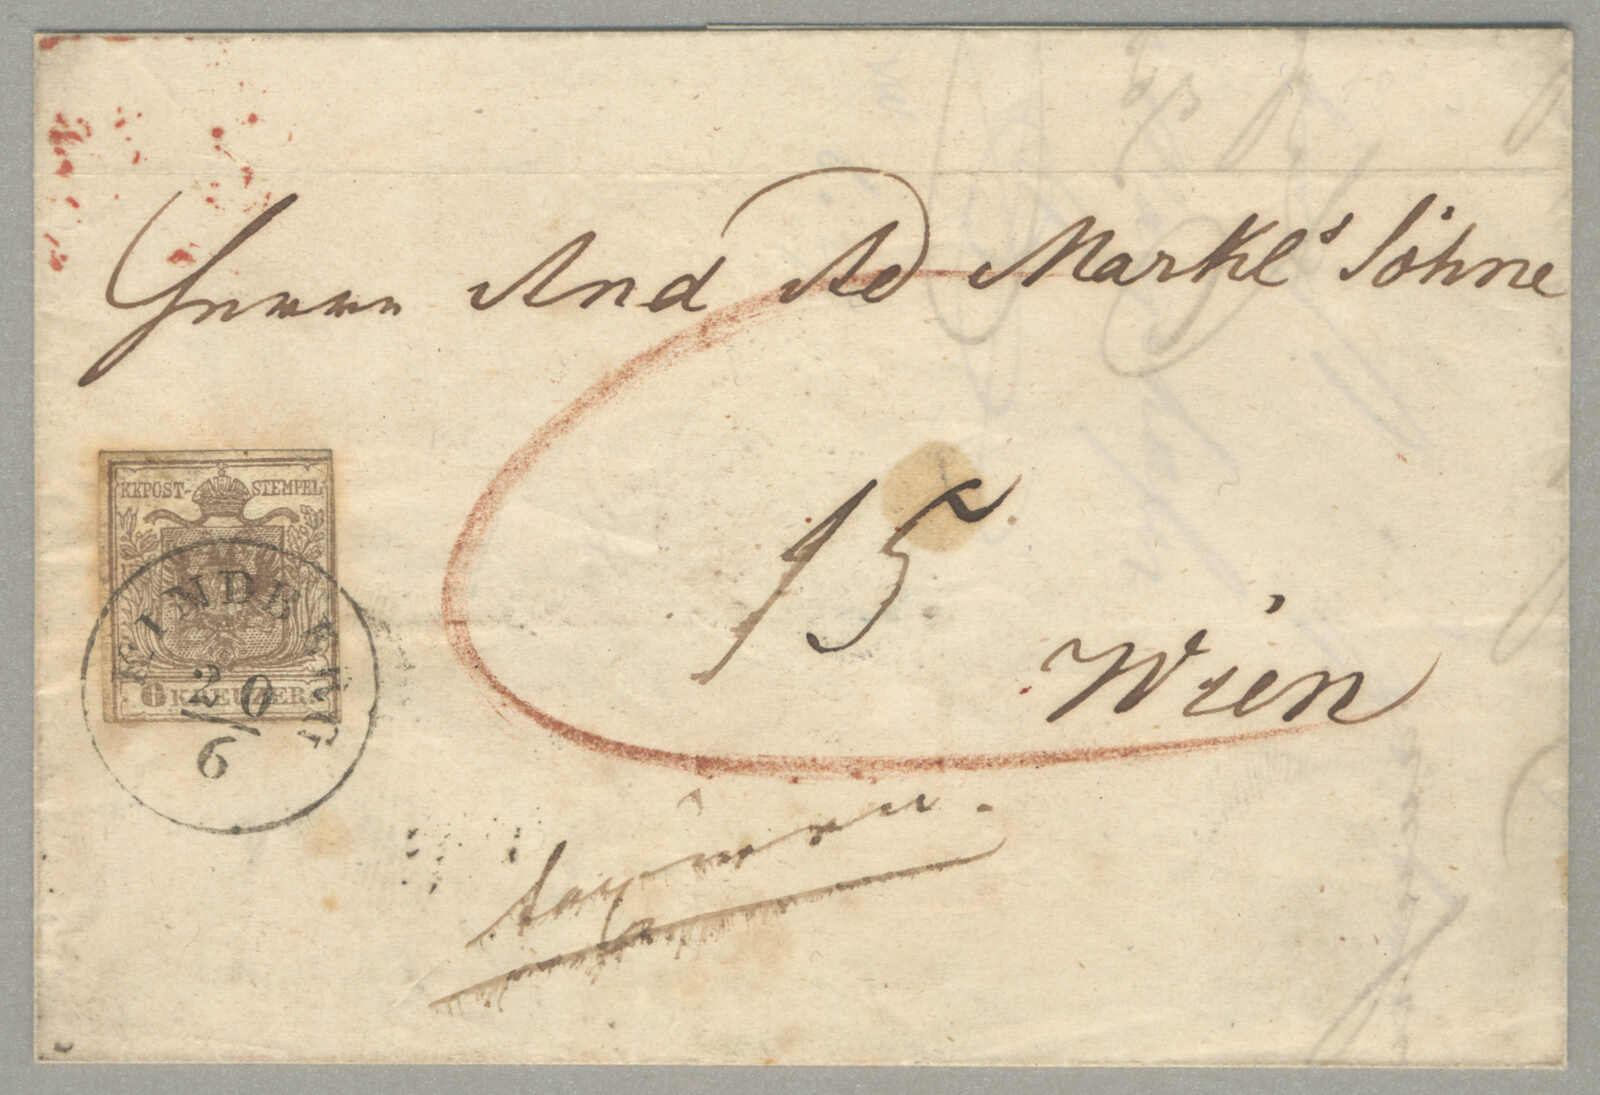 Herrn And Ad Markl's Söhne
KKPOST-STEMPEL
6 KREUZER
20
6
15
Wien